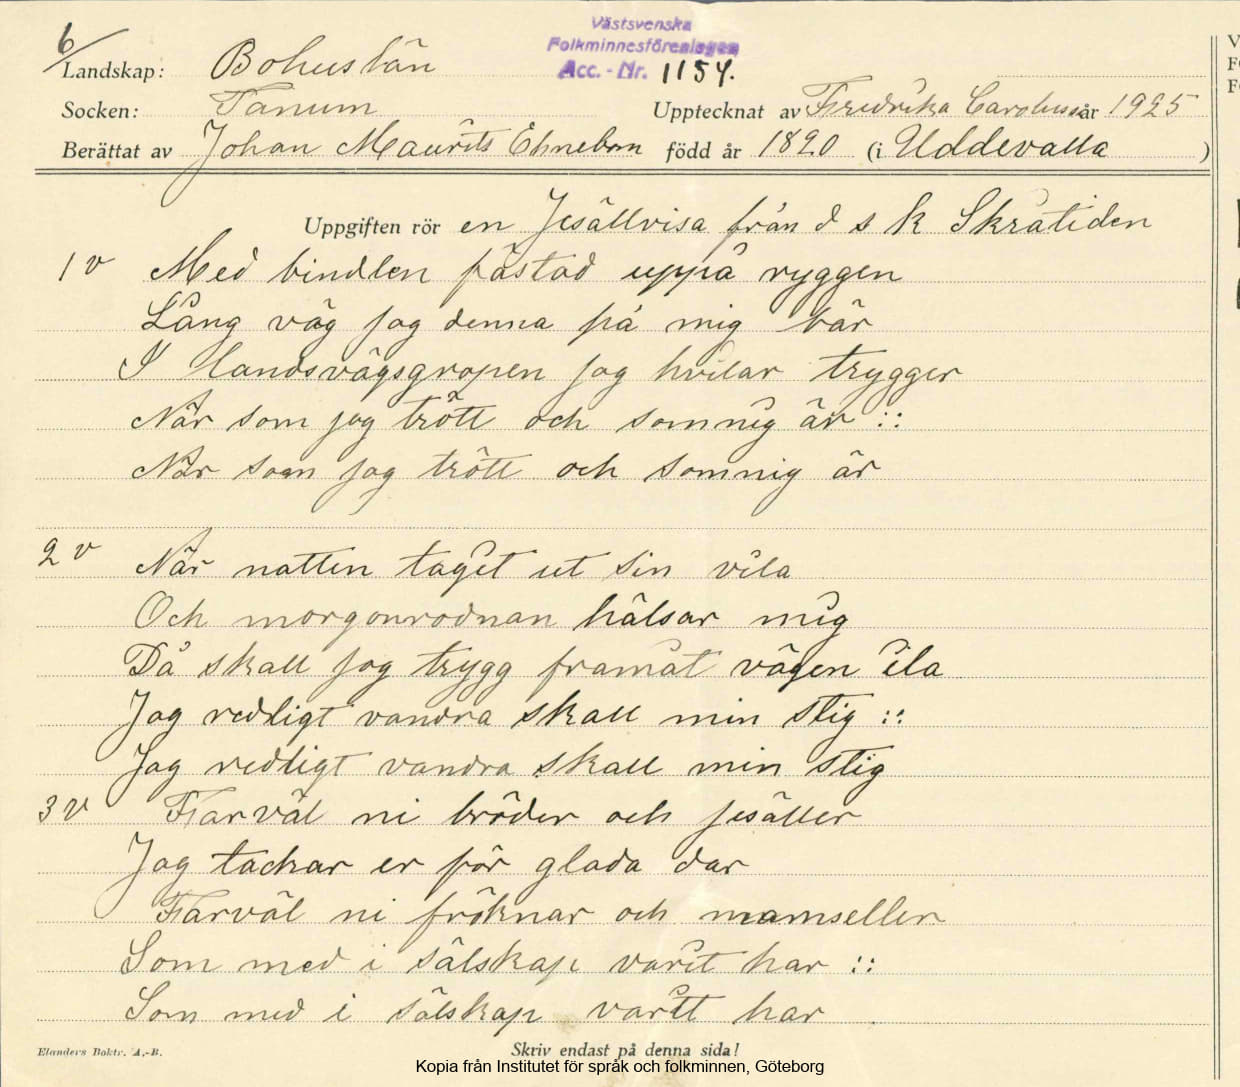 6
Västsvenska
Folkminnesföreningen
Acc.-Nr. 1154.
Landskap: Bohuslän
Socken: Tanum
Upptecknat av Fredrika Carolusson år 1925
Berättat av Johan Maurits Ehneborn född år 1820 (i Uddevalla)
Uppgiften rör en Jesällvisa från d s k Skråtiden
1 v Med bindlen fästad uppå ryggen
Lång väg jag denna på mig bär
I landsvägsgropen jag hvilar trygger
När som jag trött och somnig är ::
När som jag trött och somnig är
2 v När natten taget ut sin vila
Och morgonrodnan hälsar mig
Då skall jag trygg framåt vägen ila
Jag redligt vandra skall min stig ::
Jag redligt vandra skall min stig
3 v Farväl ni bröder och jesäller
Jag tackar er för glada dar
Farväl ni fröknar och mamseller
Som med i sälskap varit har ::
Som med i sälskap varitt har
Elanders Boktr. A.-B.
Skriv endast på denna sida!
Kopia från Institutet för språk och folkminnen, Göteborg